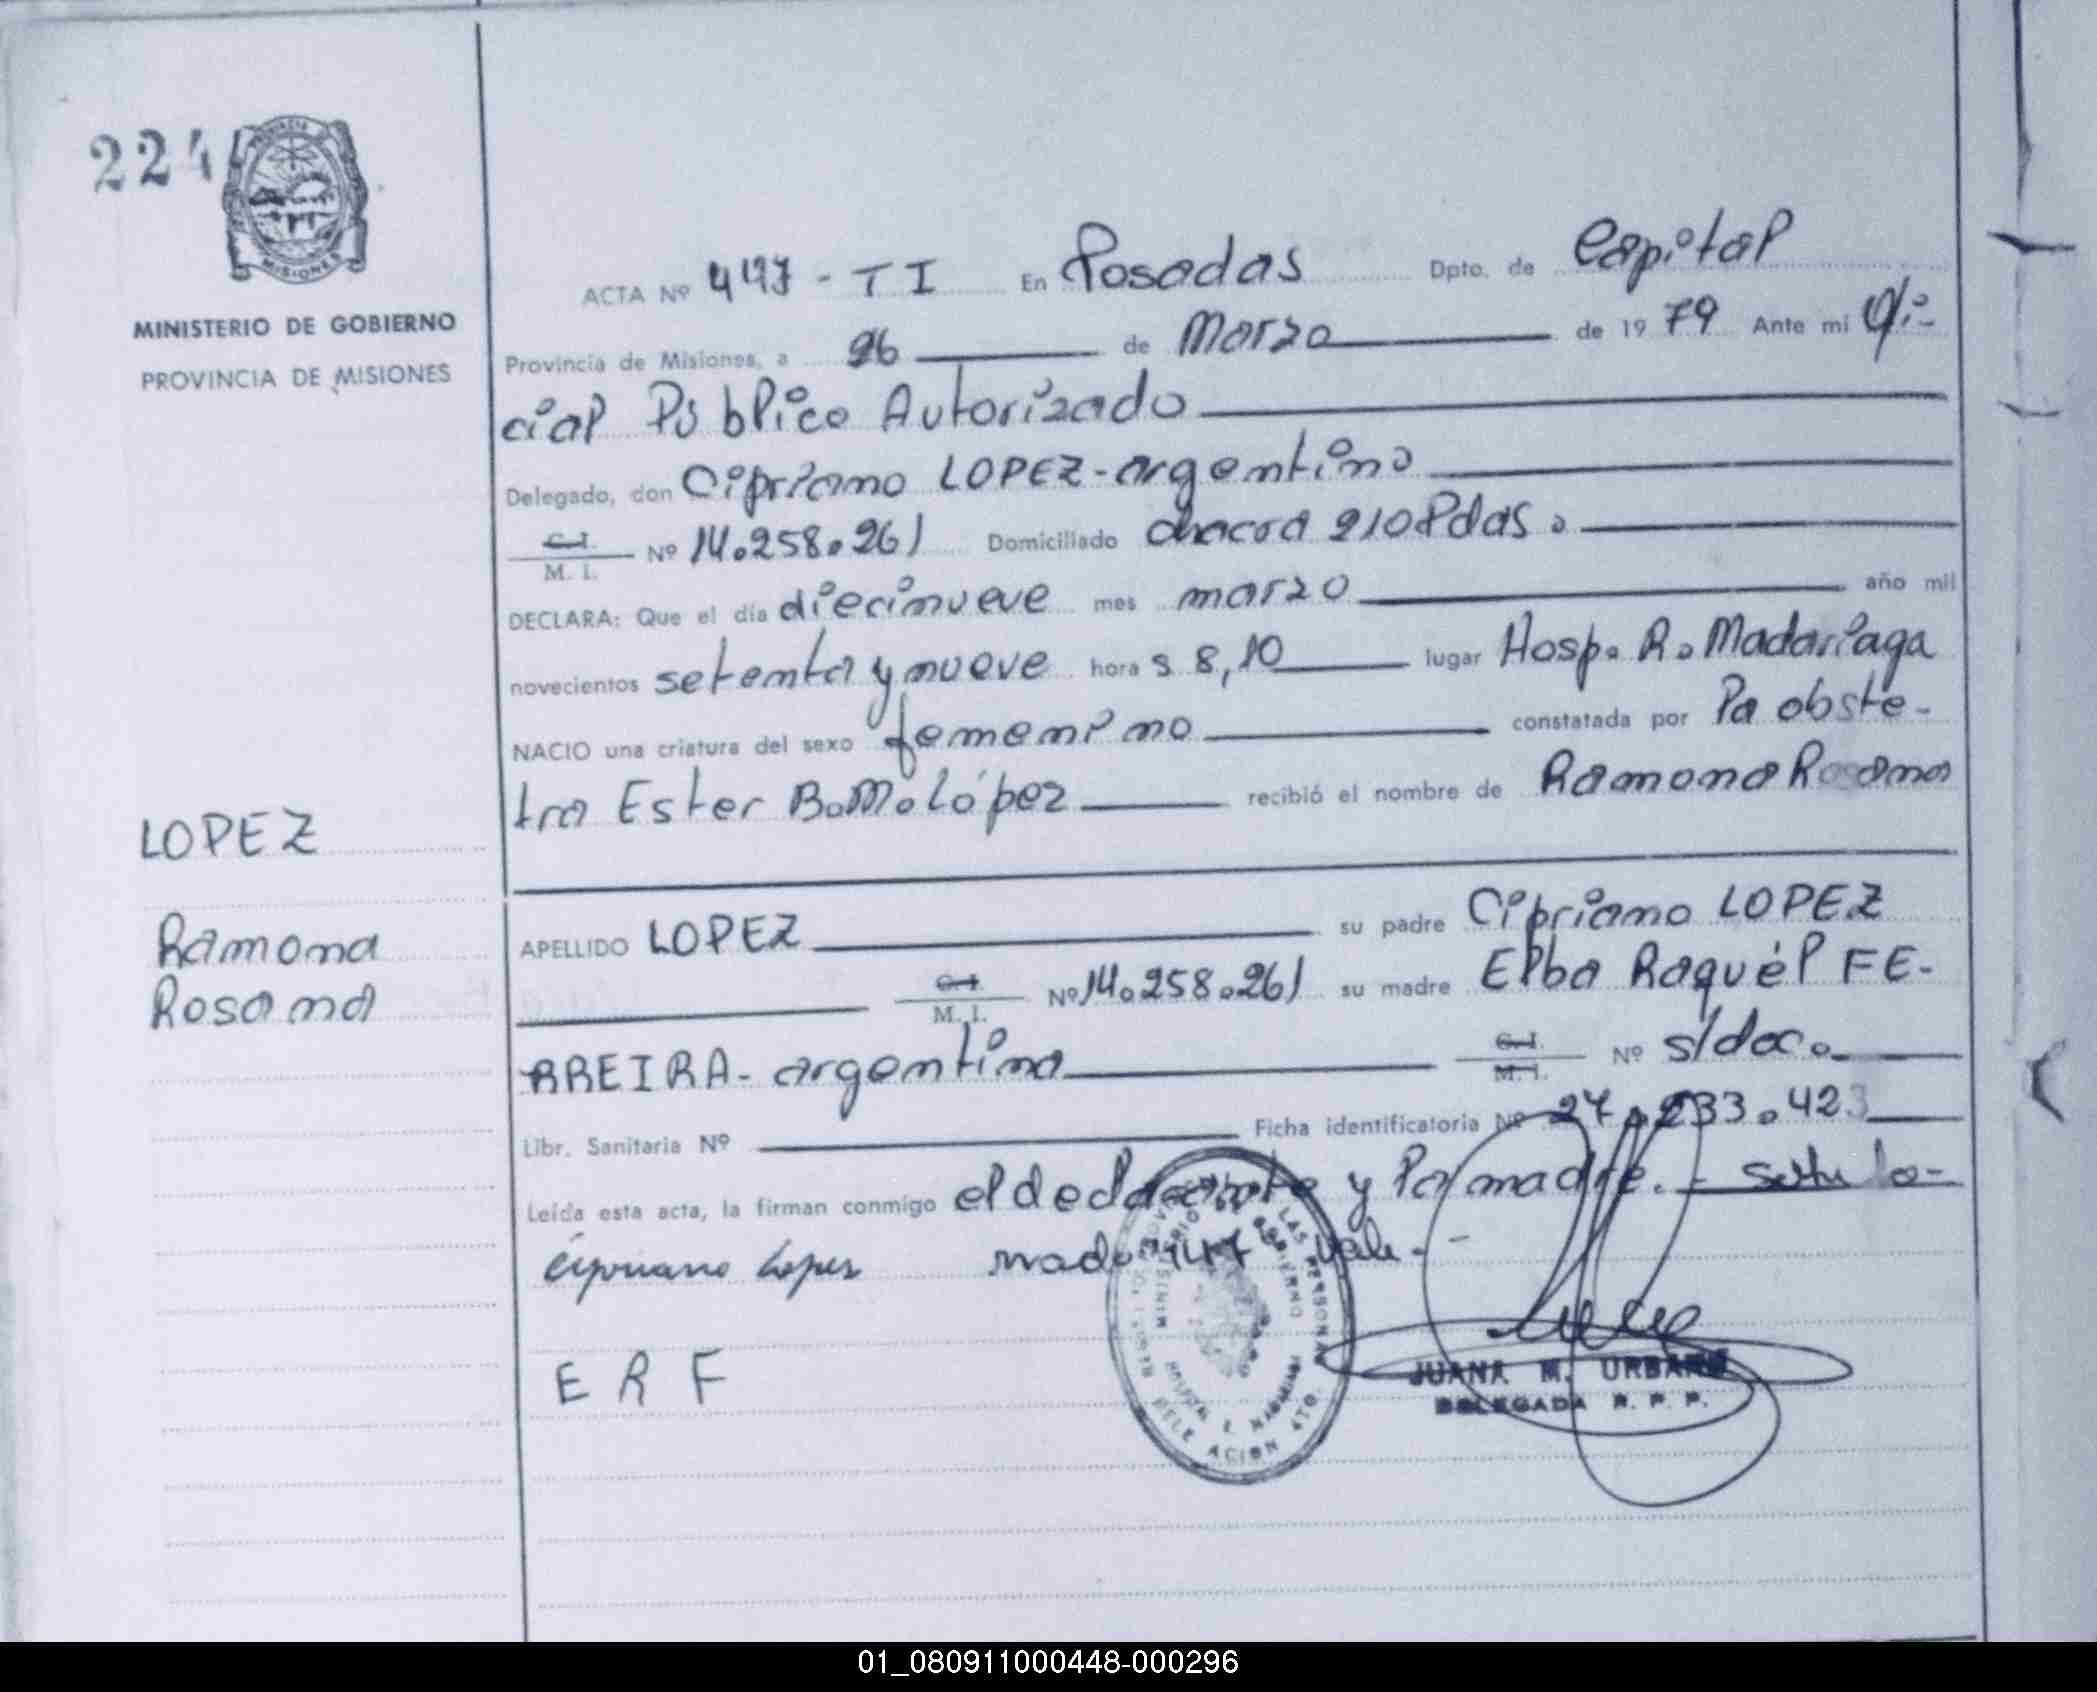 224
PROVINCIA DE
MISIONES
MINISTERIO DE GOBIERNO
PROVINCIA DE MISIONES
ACTA Nº 447 - T I En Posadas Dpto. de Capital
Provincia de Misiones, a 26 de Marzo de 19 79 Ante mi Ofi-
cial Público Autorizado
Delegado, don Cipriano LOPEZ - argentino
C. I.
M. I. Nº 14.258.261 Domiciliado chacra 210 Pdas.
DECLARA: Que el día diecinueve mes marzo año mil
novecientos setenta y nueve hora s 8,10 lugar Hosp. R. Madariaga
NACIO una criatura del sexo femenino constatada por la obste-
tra Ester B. M. López recibió el nombre de Ramona Rosana
LOPEZ
Ramona
Rosana
APELLIDO LOPEZ su padre Cipriano LOPEZ
C. I.
M. I. Nº 14.258.261 su madre Elba Raquél FE-
RREIRA - argentina C. I.
M. I. Nº s/doc.
Libr. Sanitaria Nº Ficha identificatoria Nº 27.233.423
Leída esta acta, la firman conmigo el declarante y la madre. -
Cipriano Lopez mado 447 Vale. -
E R F
MINISTERIO DE GOBIERNO
LAS PERSONAS
JUANA M.
DELEGADA R. P. P.
01_080911000448-000296